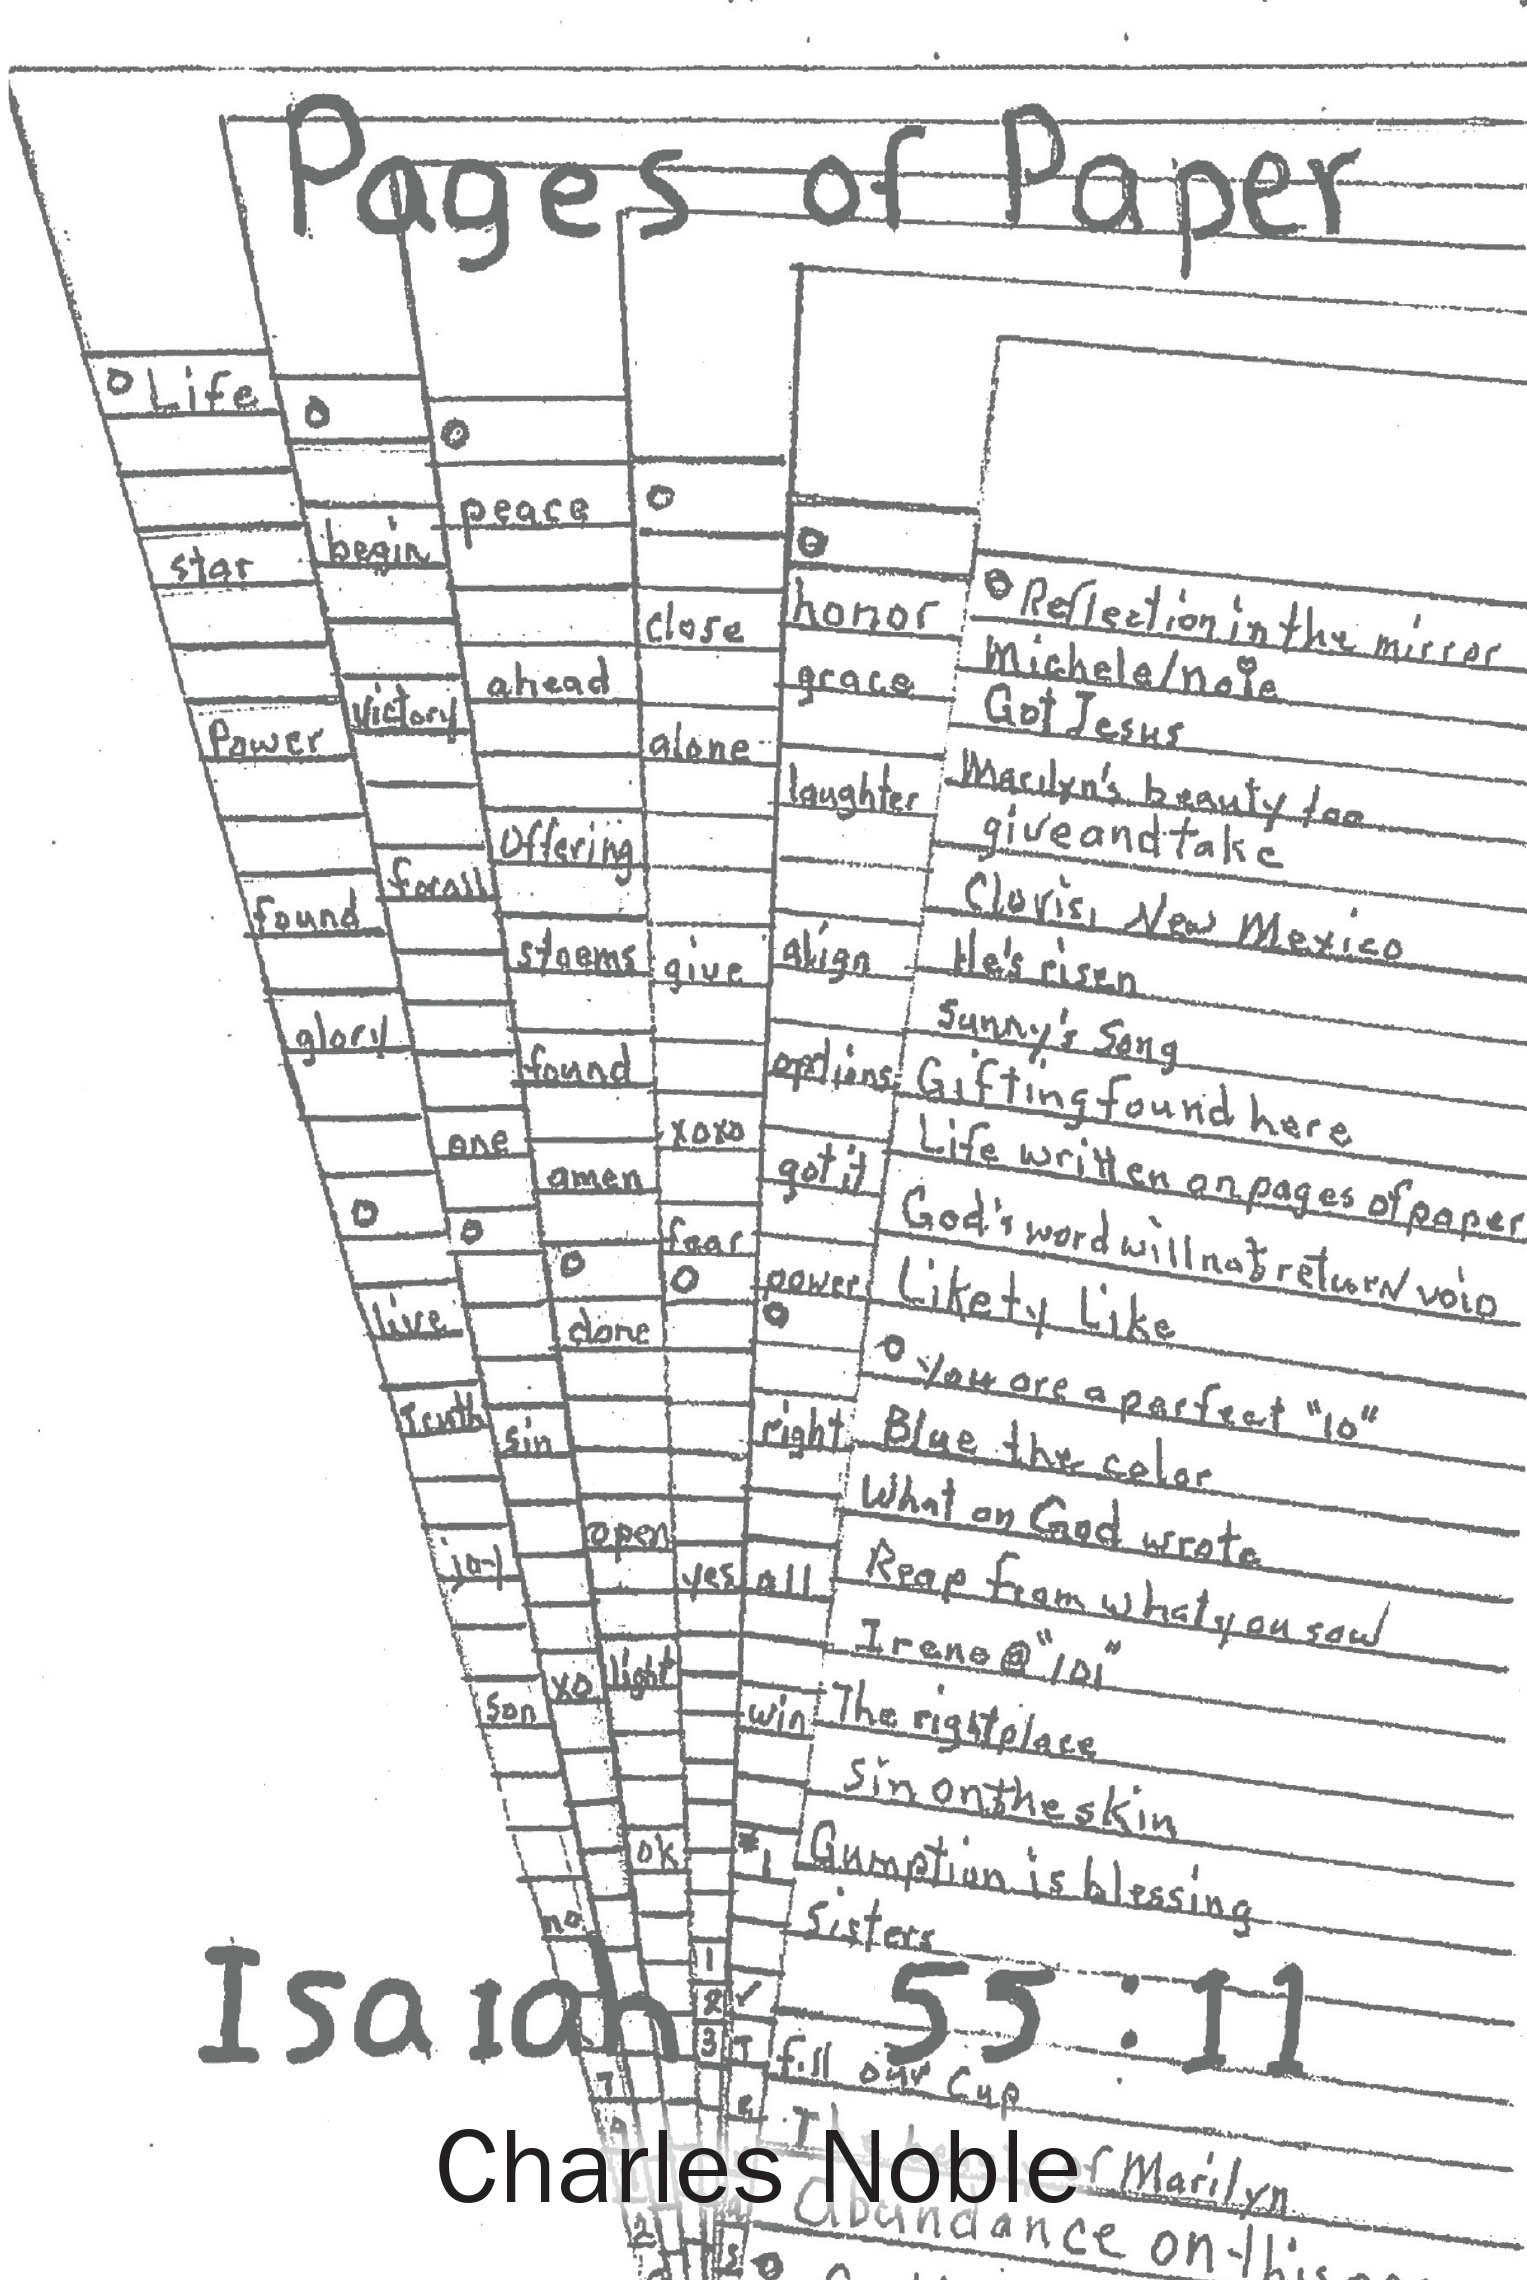 Pages of Paper
Life
star
Power
found
glory
live
Truth
joy
son
no
7
2
begin
victory
forall
one
sin
xo
peace
ahead
Offering
stoems
found
amen
done
open
light
ok
close
alone
give
xoxo
fear
yes
1
2
3
honor
grace
laughter
align
options
got it
power
right
all
win
Reflection in the mirror
Michele/noie
Got Jesus
Marilyn's beauty too
give and take
Clovis, New Mexico
He's risen
Sunny's Song
Gifting found here
Life written on pages of paper
God's word will not return void
Likety Like
You are a perfect "10"
Blue the color
What on God wrote
Reap from what you sow
Irene @ "101"
The right place
Sin on the skin
Gumption is blessing
Sisters
Isaiah 55:11
fill our Cup
of Marilyn
Charles Noble
Abundance on this